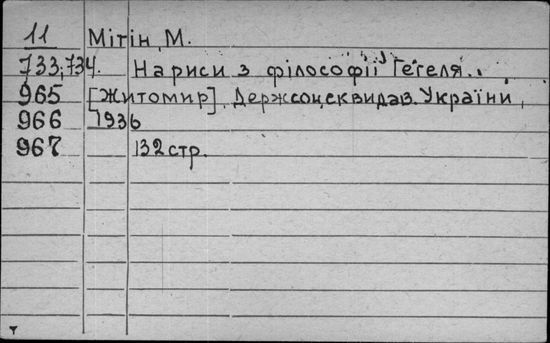 11 Мітін, М.
733;734. Нариси з філософії Геґеля..
965 [Житомир], Держсоцеквидав. України,
966 1936
967 132 стр.